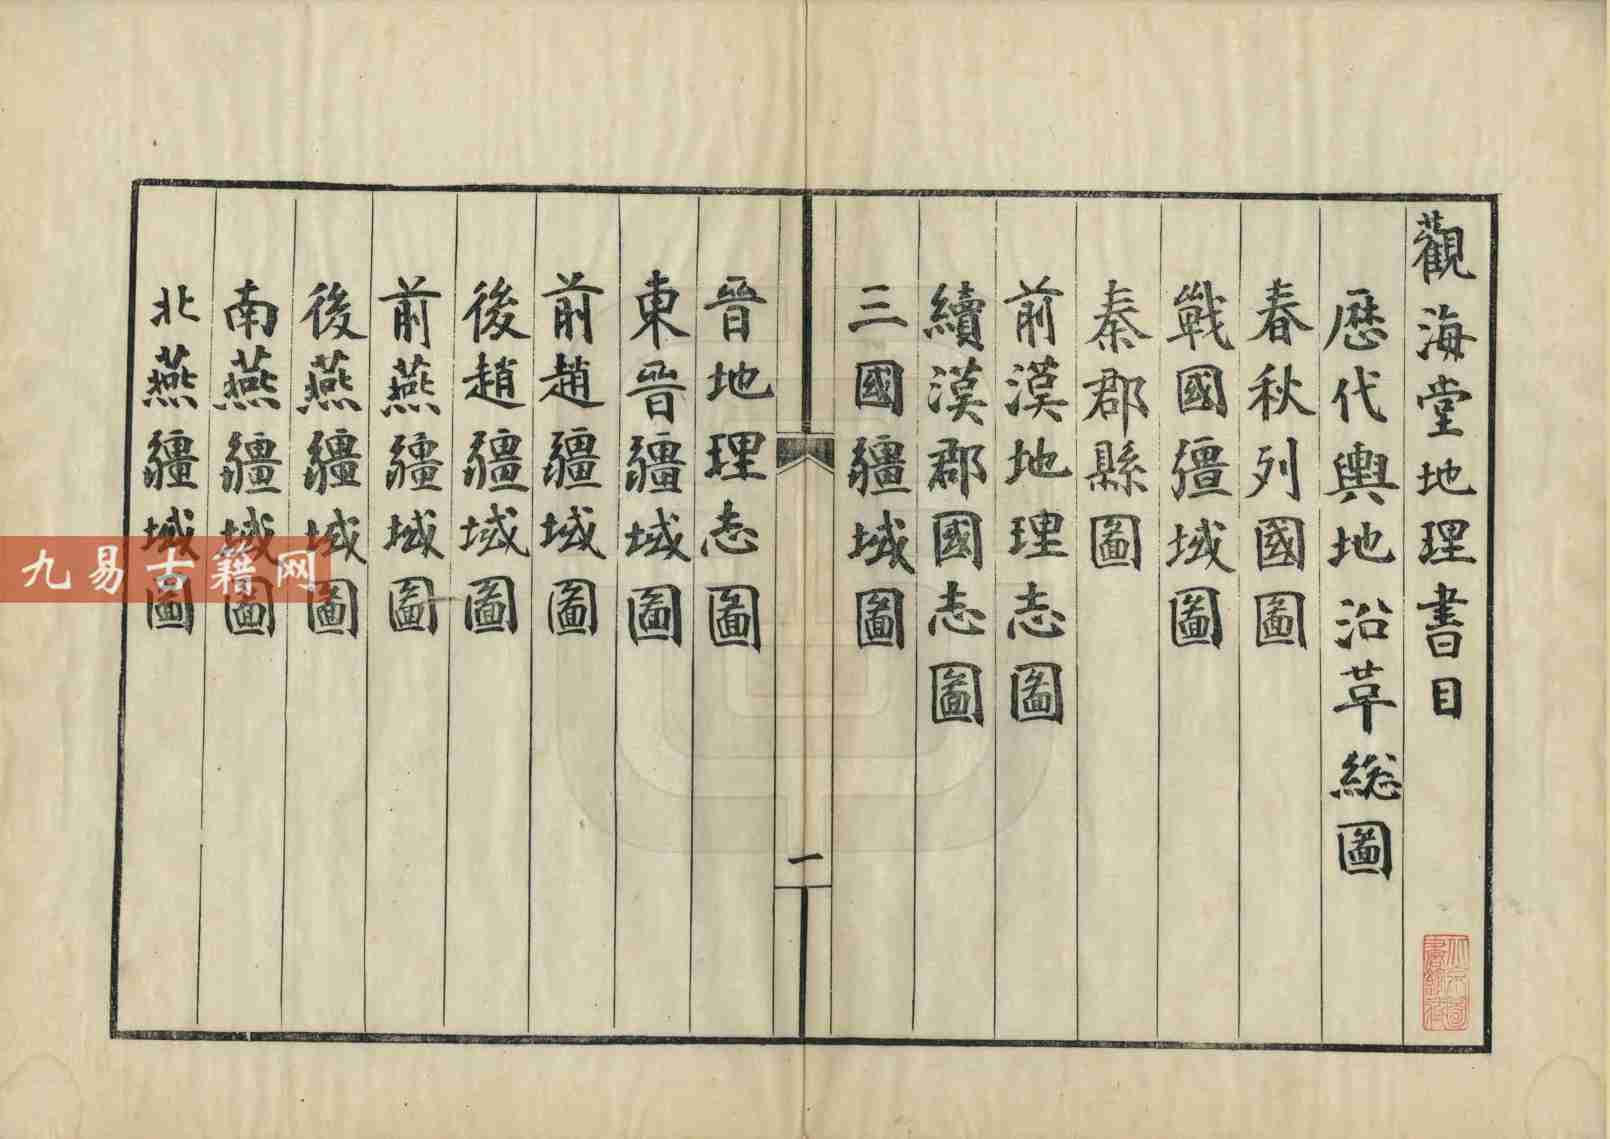 觀海堂地理書目
歷代輿地沿革総圖
春秋列國圖
戰國彊域圖
秦郡縣圖
前漢地理志圖
續漢郡國志圖
三國疆域圖
一
晉地理志圖
東晉疆域圖
前趙疆域圖
後趙疆域圖
前燕疆域圖
後燕疆域圖
南燕疆域圖
北燕疆域圖
九易古籍网